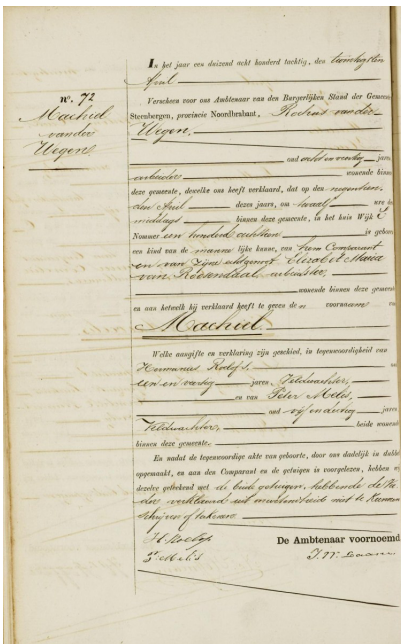 nº. 72
Machiel
van der
Wegen
In het jaar een duizend acht honderd tachtig, den twintigsten
April
Verscheen voor ons Ambtenaar van den Burgerlijken Stand der Gemeen
Steenbergen, provincie Noordbrabant, van der
Wegen,
oud acht en veertig jaren,
arbeider wonende binne
deze gemeente, dewelke ons heeft verklaard, dat op den negentien
den April dezes jaars, om twaalf ure
middags binnen deze gemeente, in het huis Wijk
Nommer een honderd is gebore
een kind van de mannelijke kunne, van hem Comparant
en van zijne echtgenoot Elizabet Maria
van Rozendaal, arbeidster,
wonende binnen deze gemeente
en aan hetwelk hij verklaard heeft te geven de voornaam
Machiel
Welke aangifte en verklaring zijn geschied, in tegenwoordigheid van
Hermanus
een en veertig jaren, Veldwachter,
en van Peter Melis,
oud vijf en dertig jaren
Veldwachter, beide wonend
binnen deze gemeente.
En nadat de tegenwoordige akte van geboorte, door ons dadelijk in dubbe
opgemaakt, en aan den Comparant en de getuigen is voorgelezen, hebben wij
dezelve geteekend met de beide getuigen, hebbende de Va
der verklaard uit niet te kunnen
schrijven of teekenen
De Ambtenaar voornoemd
P. Melis